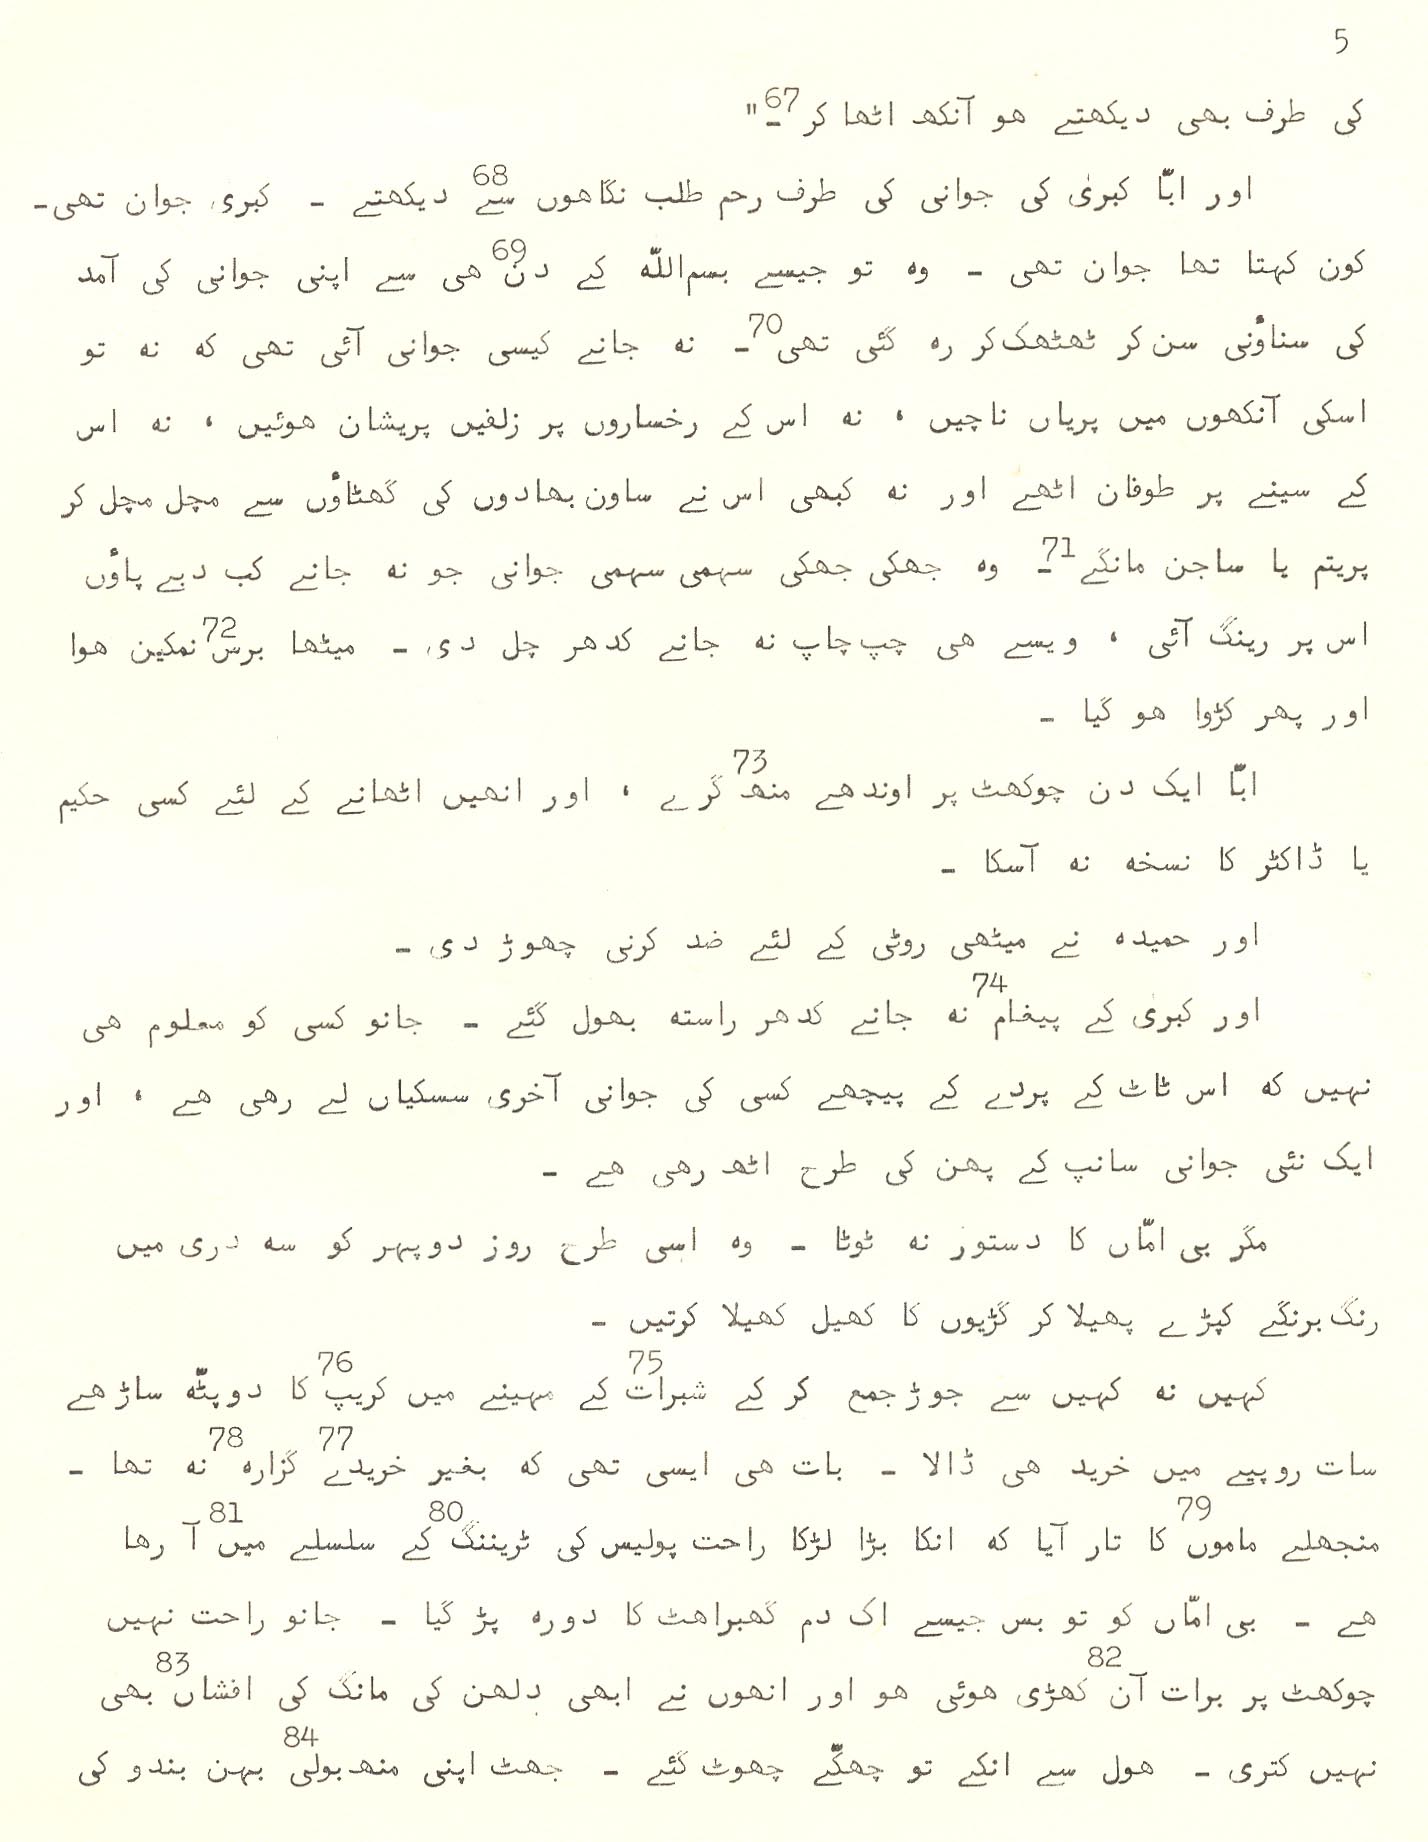 5
کی طرف بھی دیکھتے ھو آنکھ اٹھا کر 67۔"
اور ابّا کبریٰ کی جوانی کی طرف رحم طلب نگاھوں سے 68 دیکھتے ۔ کبری جوان تھی۔
کون کہتا تھا جوان تھی ۔ وہ تو جیسے بسم‌اللّہ کے دن 69 ھی سے اپنی جوانی کی آمد
کی سناوٴنی سن کر ٹھٹھک کر رہ گئی تھی 70۔ نہ جانے کیسی جوانی آئی تھی کہ نہ تو
اسکی آنکھوں میں پریاں ناچیں ، نہ اس کے رخساروں پر زلفیں پریشان ھوئیں ، نہ اس
کے سینے پر طوفان اٹھے اور نہ کبھی اس نے ساون بھادوں کی گھٹاوٴں سے مچل مچل کر
پریتم یا ساجن مانگے 71۔ وہ جھکی جھکی سہمی سہمی جوانی جو نہ جانے کب دبے پاوٴں
اس پر رینگ آئی ، ویسے ھی چپ چاپ نہ جانے کدھر چل دی ۔ میٹھا برس 72 نمکین ھوا
اور پھر کڑوا ھو گیا ۔
ابّا ایک دن چوکھٹ پر اوندھے منھ 73 گرے ، اور انھیں اٹھانے کے لئے کسی حکیم
یا ڈاکٹر کا نسخہ نہ آسکا ۔
اور حمیدہ نے میٹھی روٹی کے لئے ضد کرنی چھوڑ دی ۔
اور کبری کے پیغام 74 نہ جانے کدھر راستہ بھول گئے ۔ جانو کسی کو معلوم ھی
نہیں کہ اس ٹاٹ کے پردے کے پیچھے کسی کی جوانی آخری سسکیاں لے رھی ھے ، اور
ایک نئی جوانی سانپ کے پھن کی طرح اٹھ رھی ھے ۔
مگر بی امّاں کا دستور نہ ٹوٹا ۔ وہ اسی طرح روز دوپہر کو سہ دری میں
رنگ برنگے کپڑے پھیلا کر گڑیوں کا کھیل کھیلا کرتیں ۔
کہیں نہ کہیں سے جوڑ جمع کر کے شبرات 75 کے مہینے میں کریپ 76 کا دوپٹّہ ساڑھے
سات روپیے میں خرید ھی ڈالا ۔ بات ھی ایسی تھی کہ بغیر خریدے 77 گزارہ 78 نہ تھا ۔
منجھلے ماموں 79 کا تار آیا کہ انکا بڑا لڑکا راحت پولیس کی ٹریننگ 80 کے سلسلے میں 81 آ رھا
ھے ۔ بی امّاں کو تو بس جیسے اک دم گھبراھٹ کا دورہ پڑ گیا ۔ جانو راحت نہیں
چوکھٹ پر برات آن 82 کھڑی ھوئی ھو اور انھوں نے ابھی دلھن کی مانگ کی افشاں 83 بھی
نہیں کتری ۔ ھول سے انکے تو چھکّے چھوٹ گئے ۔ جھٹ اپنی منھ بولی 84 بہن بندو کی